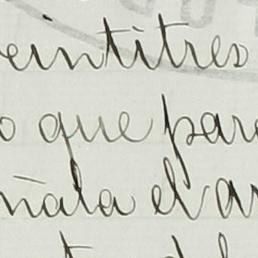 eintitres
o que para
ñala el ar